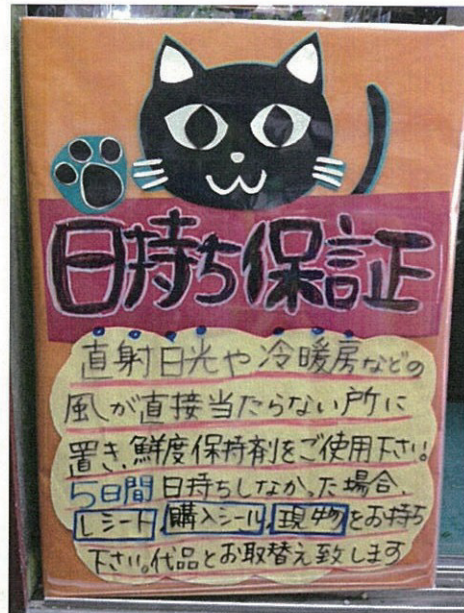 日持ち保証
直射日光や冷暖房などの
風が直接当たらない所に
置き、鮮度保持剤をご使用下さい。
5日間 日持ちしなかった場合、
レシート、購入シール、現物をお持ち
下さい。代品とお取替え致します